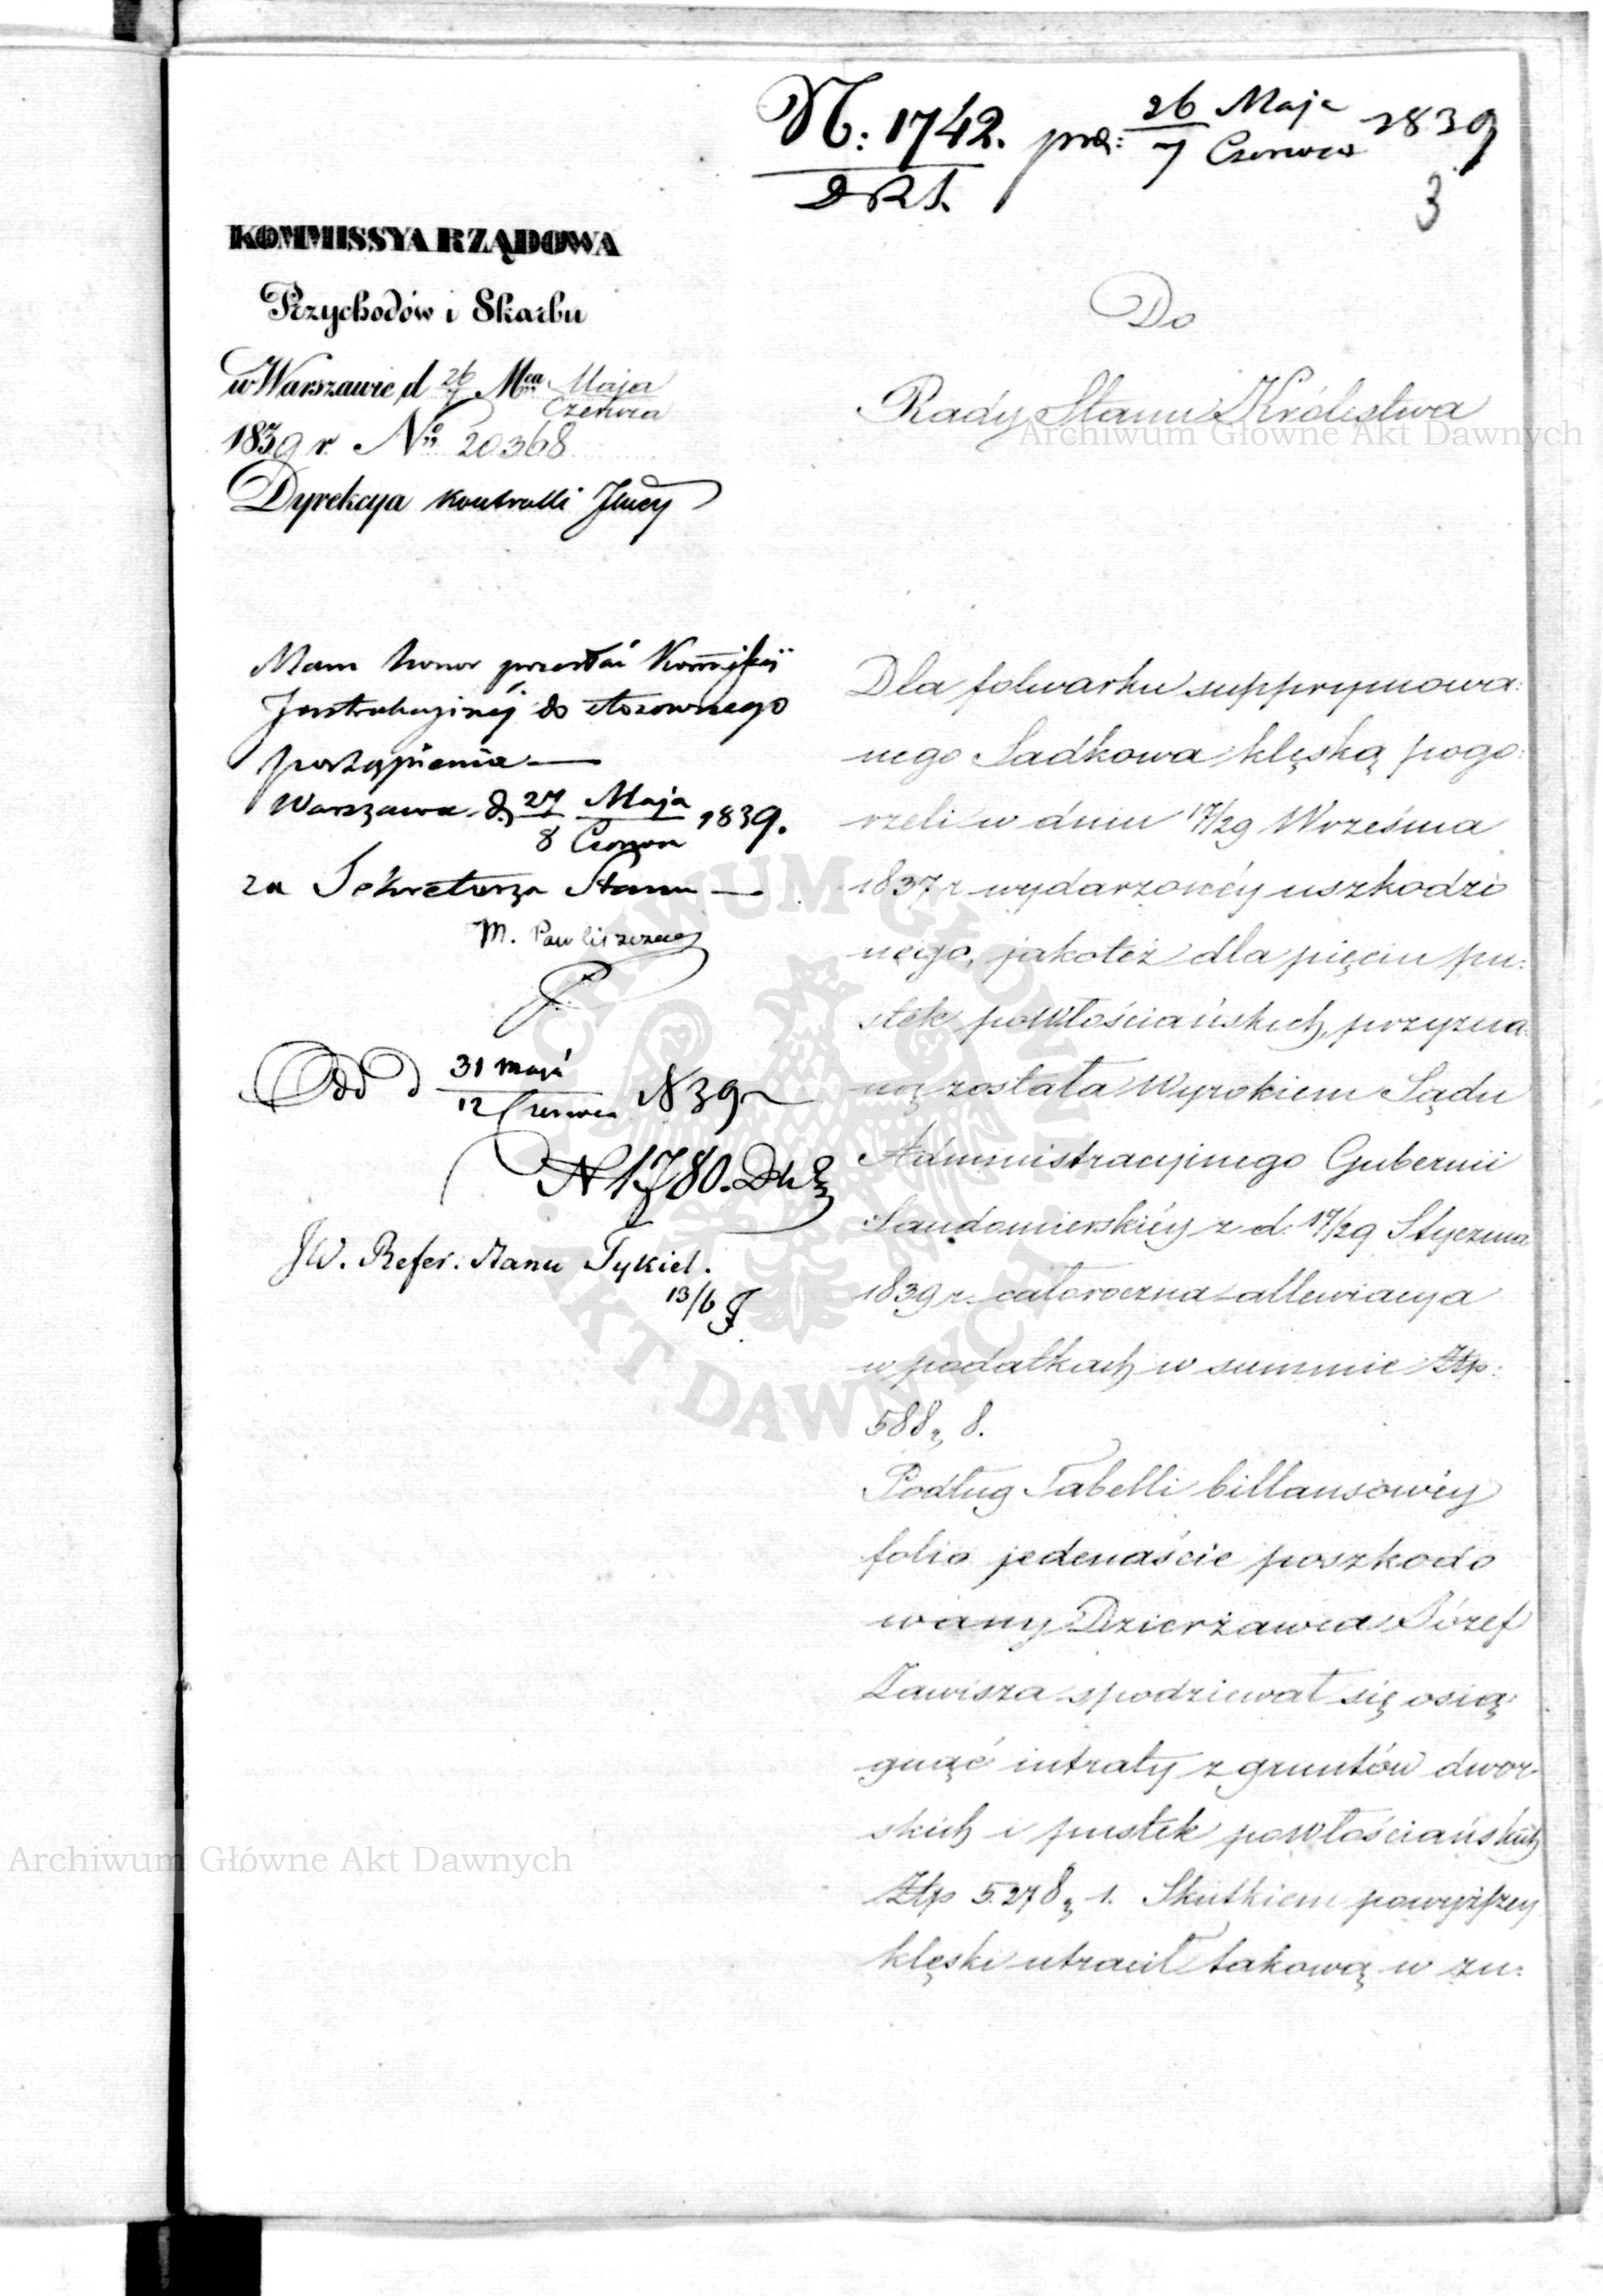 N: 1742. pr: 26 Maja 1839
D R S. 7 Czerwca
3
KOMMISSYA RZĄDOWA
Przychodów i Skarbu
w Warszawie d 26/7 Mca Maja
Czerwca
1839 r. Nro 20368
Dyrekcya Kontrolli
Do
Rady Stanu Królestwa
Mam honor przesłać Kommissyi
Instrukcyjnéj do stosownego
postąpienia —
Warszawa d. 27 Maja 1839.
8 Czerwca
za Sekretarza Stanu —
M. Pawliszczew
Odd d 31 maja 1839 r
12 Czerwca
N 1780.
JW. Refer. Stanu Tykiel.
13/6
Dla folwarku supprymowa:
nego Sadkowa klęską pogo:
rzeli w dniu 17/29 Września
1837 r wydarzonéy uszkodzo
nego, jakoteż dla pięciu pu:
stek powłościańskich, przyzna:
ną została Wyrokiem Sądu
Administracyjnego Gubernii
Sandomierskiéy z d. 17/29 Stycznia
1839 r. całoroczna allewiacya
w podatkach w summie Złtp:
588, 8.
Podług Tabelli billansowéy
folio jedenaście poszkodo
wany Dzierżawca Józef
Zawisza spodziewał się osią:
gnąć intraty z gruntów dwor-
skich i pustek powłościańskich
Złtp 5278, 1. Skutkiem powyższey
klęski utracił takową w zu:
Archiwum Główne Akt Dawnych
Archiwum Główne Akt Dawnych
ARCHIWUM GŁÓWNE AKT DAWNYCH